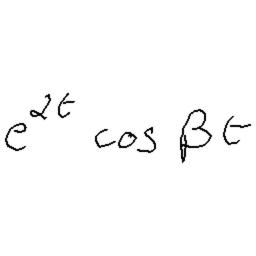 e^{αt} cos βt